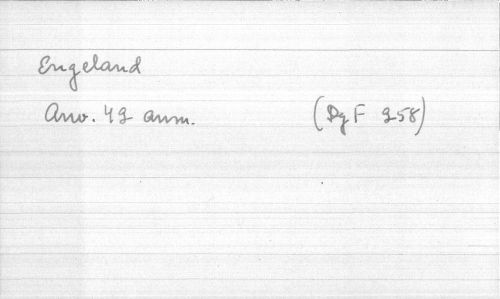 Engeland
Arw. 42 anm. (DgF 258)